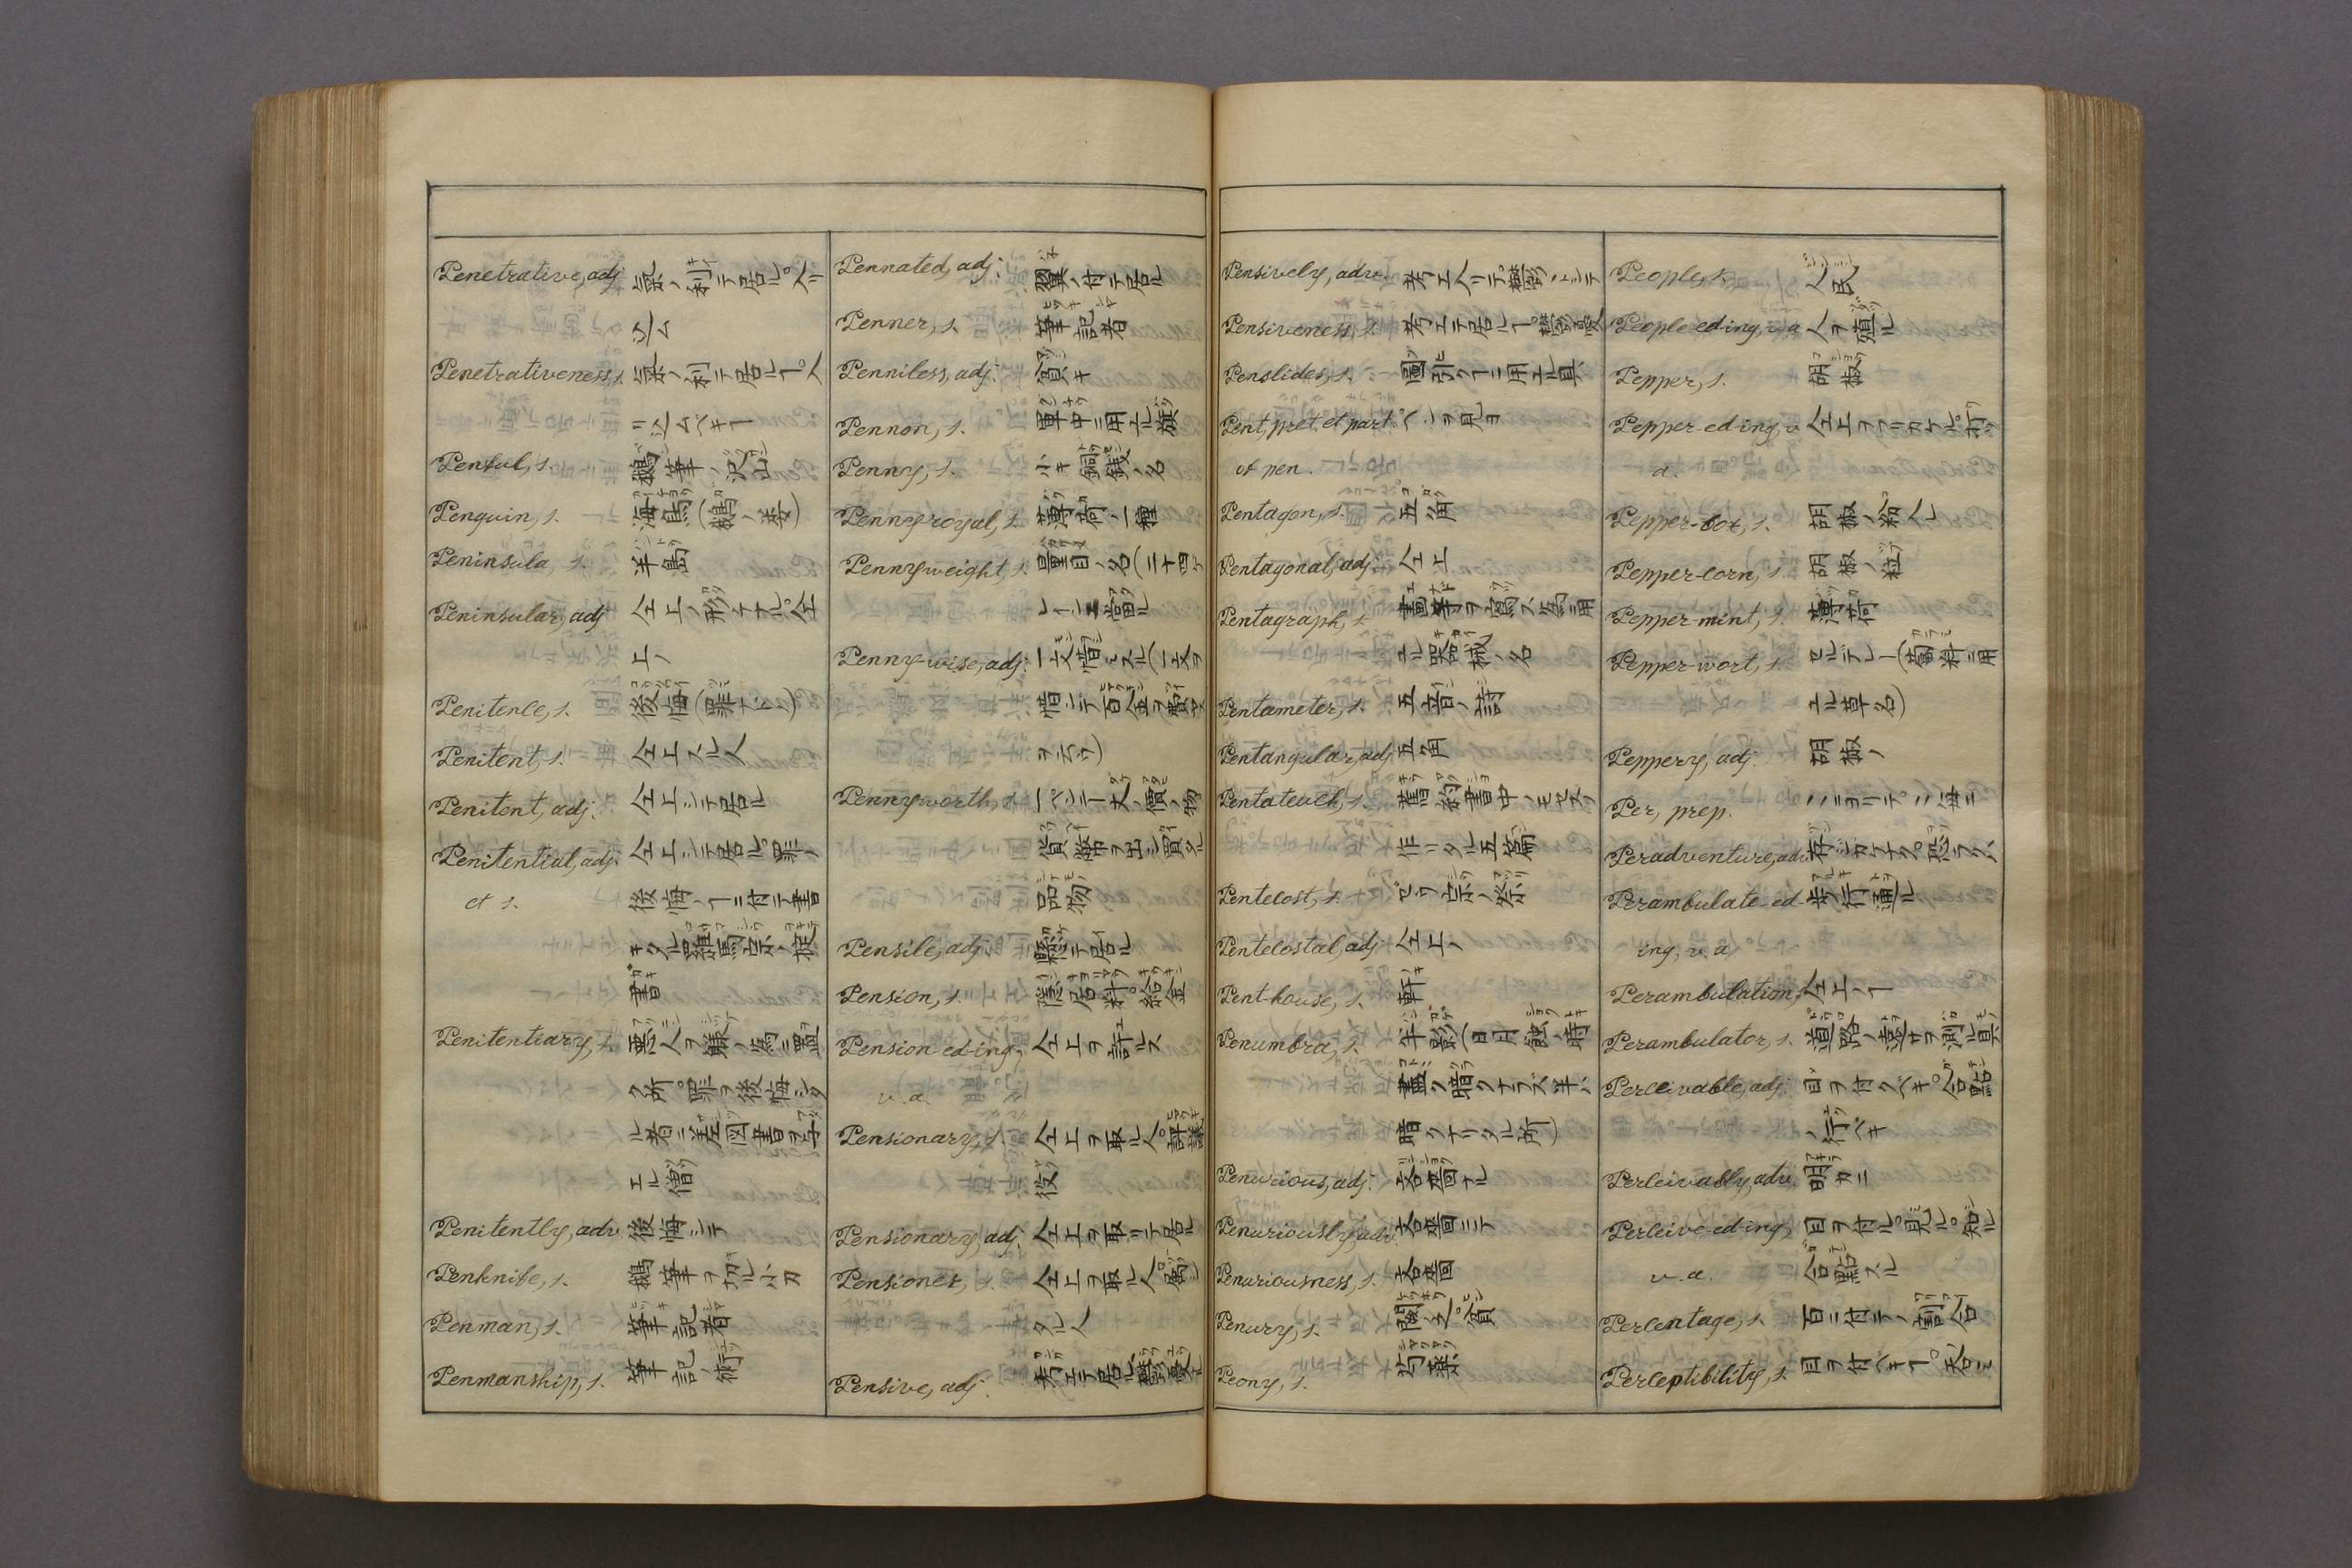 Penetrative, adj. 氣ノ利テ居ル。入リ
込ム
Penetrativeness, s. 氣ノ利テ居ルヿ。入
リ込ムベキヿ
Penful, s. 鵝筆ノ沢山
Penguin, s. 海鳥(鵝ノ姿)
Peninsula, s. 半島
Peninsular, adj. 仝上ノ形ケナル。仝
上ノ
Penitence, s. 後悔(罪ナドノ)
Penitent, s. 仝上スル人
Penitent, adj. 仝上シテ居ル
Penitential, adj. 仝上シテ居ル。罪ノ
et s. 後悔ノヿニ付テ書
キタル羅馬宗ノ掟
書
Penitentiary, s. 悪人ヲ躾ノ為ニ置
ク所。罪ヲ後悔シタ
ル者ニ差図書ヲ与
エル僧
Penitently, adv. 後悔シテ
Penknife, s. 鵝筆ヲ切ル小刀
Penman, s. 筆記者
Penmanship, s. 筆記ノ術
Pennated, adj. 翼ノ付テ居ル
Penner, s. 筆記者
Penniless, adj. 貧キ
Pennon, s. 軍中ニ用エル旗
Penny, s. 小キ銅錢ノ名
Pennyroyal, s. 薄荷ノ一種
Pennyweight, s. 量目ノ名(二十四ケ
レーンニ當ル
Penny-wise, adj. 一文惜ミスル(一文ヲ
惜ンデ百金ヲ費ス
ヲ云フ)
Pennyworth, s. 一ペンニー丈ノ價ノ物
貨幣ヲ出シ買タル
品物
Pensile, adj. 懸テ居ル
Pension, s. 隱居料。給金
Pension-ed-ing, 仝上ヲ許ス
v. a.
Pensionary, s. 仝上ヲ取ル人。評議
役
Pensionary, adj. 仝上ヲ取リテ居ル
Pensioner, s. 仝上ヲ取ル人。
タル人
Pensive, adj. 考エテ居ル。鬱憂ル
Pensively, adv. 考エ入リテ。鬱トシテ
Pensiveness, s. 考エテ居ルヿ。鬱憂
Penslides, s. 圖引クヿニ用エル具
Pent, pret. et part. ペンヲ見ヨ
of pen.
Pentagon, s. 五角
Pentagonal, adj. 仝上
Pentagraph, s. 畫等ヲ寫ス為ニ用
エル器械ノ名
Pentameter, s. 五音ノ詩
Pentangular, adj. 五角
Pentateuch, s. 舊約書中ノモセスノ
作リタル五篇
Pentecost, s. 宗ノ祭
Pentecostal, adj. 仝上ノ
Pent-house, s. 軒
Penumbra, s. 半影(日月蝕ノ時
盡ク暗クナラズ半バ
暗クナリタル所)
Penurious, adj. 吝嗇ナル
Penuriously, adv. 吝嗇ニテ
Penuriousness, s. 吝嗇
Penury, s. 闕乏。貧
Peony, s. 芍藥
People, s. 人民
People-ed-ing, v. a. 人ヲ殖ル
Pepper, s. 胡椒
Pepper-ed-ing, v. 仝上ヲフリカケル。打ツ
a.
Pepper-box, s. 胡椒ノ粉入
Pepper-corn, s. 胡椒ノ粒
Pepper-mint, s. 薄荷
Pepper-wort, s. セルデレー(料ニ用
エル草ノ名)
Peppery, adj. 胡椒ノ
Per, prep. ニヨリテ。毎ニ
Peradventure, adv. 存ジガケナク。恐ラクハ
Perambulate-ed- 歩行通ル
ing, v. a.
Perambulation, 仝上ノヿ
Perambulator, s. 道路ノ遠サヲ測ル具
Perceivable, adj. 目ヲ付クベキ。合點
ノ行ベキ
Perceivably, adv. 明カニ
Perceive-ed-ing, 目ヲ付ル。見ル。知ル
v. a. 合點スル
Percentage, s. 百ニ付テノ割合
Perceptibility, s. 目ヲ付ベキヿ。